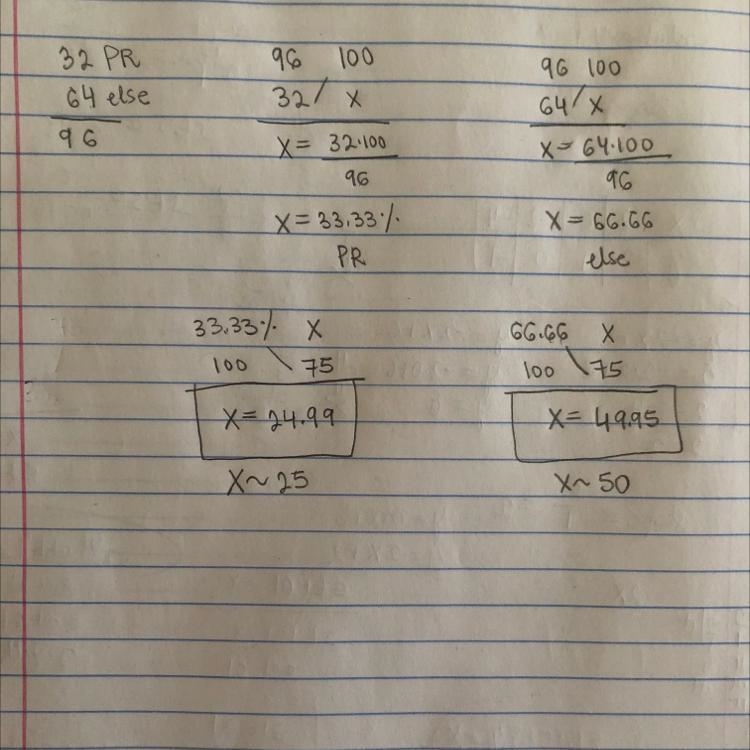 32 PR
64 else
96
96 100
32 / X
X = 32.100
96
X = 33.33%
PR
96 100
64 / X
X = 64.100
96
X = 66.66
else
33.33% X
100 \ 75
X = 24.99
X ~ 25
66.66 X
100 \ 75
X = 49.95
X ~ 50